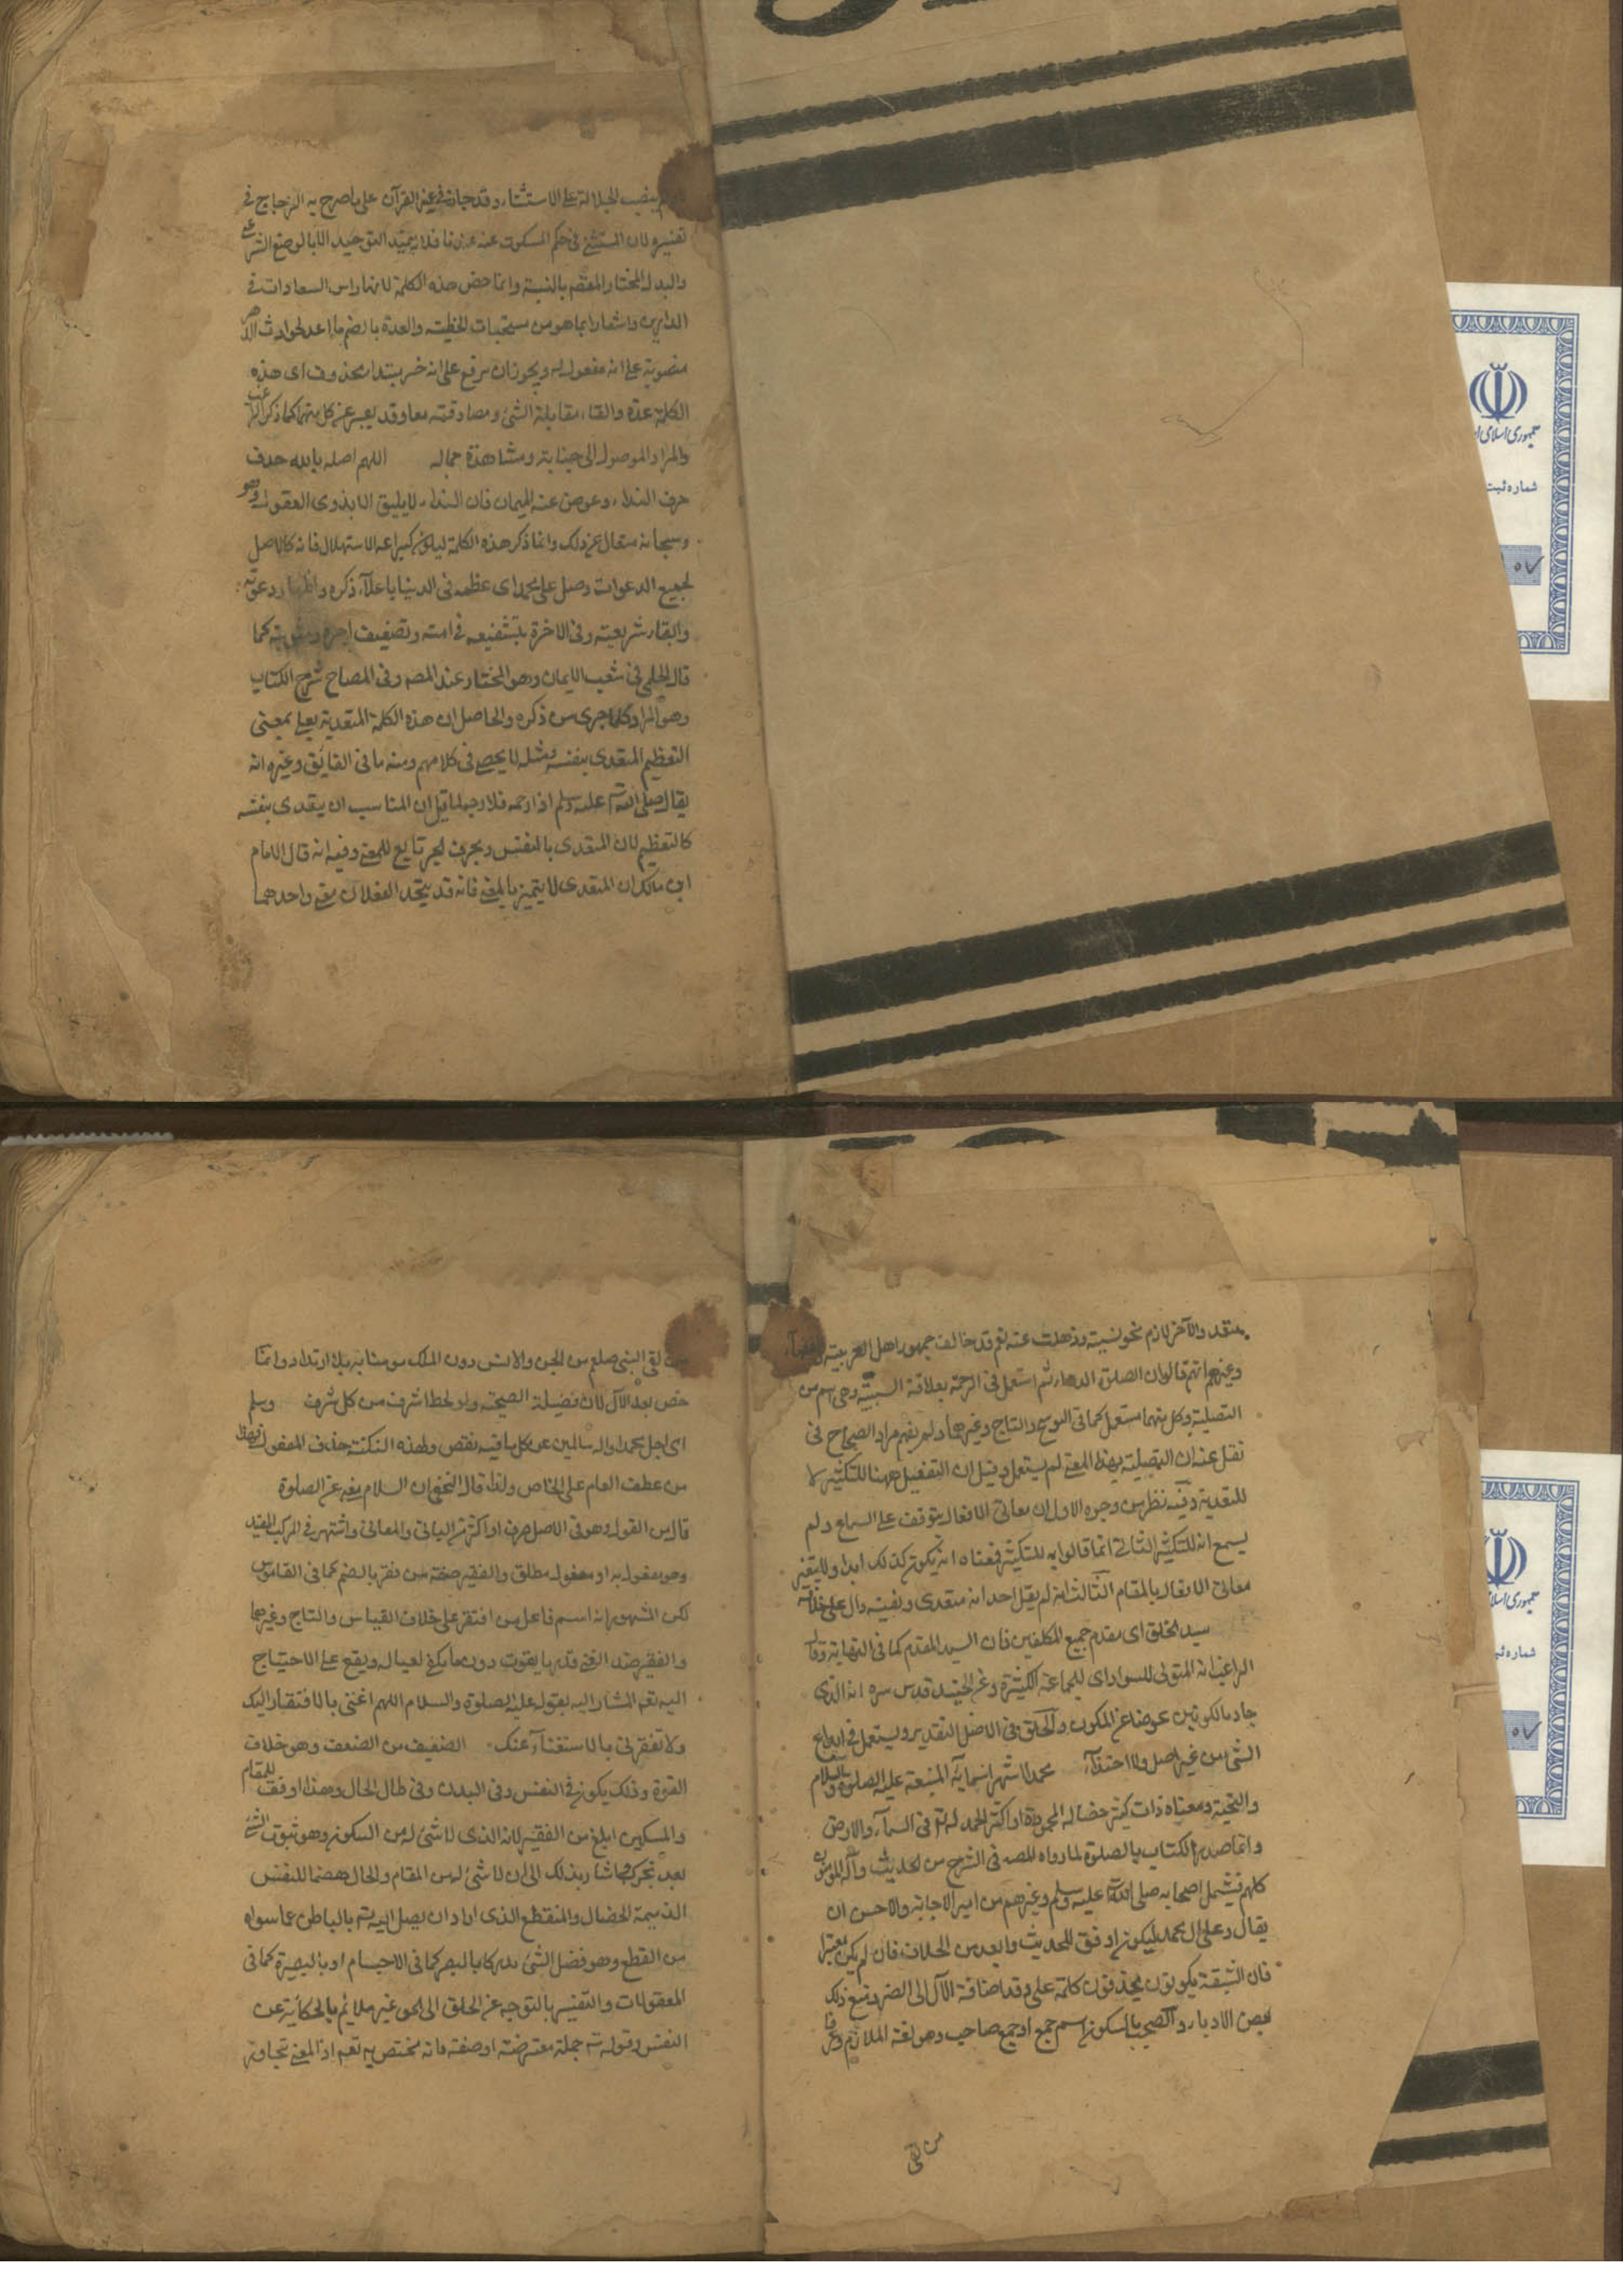 ينصب الجلالة على الاستثناء وقد جاز في غير القرآن على ما صرح به الزجاج في
تفسيره لان المستثنى في حكم المسكوت عنه عندنا فلا يفيد التوحيد الا بالوضع الشرعي
والبدل المختار المقصم بالنسبة وانما خص هذه الكلمة لانها راس السعادات في
الدارين واشعارا بما هو من مستحبات الخطبة والعدة بالضم ما اعد لحوادث الدهر
منصوبة على انه مفعول له ويجوز ان يرفع على انه خبر مبتدا محذوف اى هذه
الكلمة عدة والقاء مقابلة الشئ ومصادفته معا وقد يعبر عن كل منهما كما ذكر الراغب
والمراد الموصول الى جنابه ومشاهدة جماله اللهم اصله يا الله حذف
حرف النداء وعوض عنه الميمان فان النداء لا يليق الا بذوى العقول وهو
وسبحانه متعال عن ذلك وانما ذكر هذه الكلمة ليكون كبراعة الاستهلال فانه كالاصل
لجميع الدعوات وصل على محمد اى عظمه في الدنيا باعلاء ذكره واظهار دعوته
وابقاء شريعته وفي الاخرة بتشفيعه في امته وتضعيف اجره ومثوبته كما
قال الحلمى في شعب الايمان وهو المختار عند المصه وفي المصباح شرح الكتاب
وهو المراد كلما جرى من ذكره والحاصل ان هذه الكلمة المتعدية بعلى بمعنى
التعظيم المتعدى بنفسه ومثله لا يحصى في كلامهم ومنه ما في الفايق وغيره انه
يقال صلى الله عليه وسلم اذا رحمه فلا وجه لما قيل ان المناسب ان يتعدى بنفسه
كالتعظيم لان المتعدى بالنفس وبحرف الجر تابع للمعنى وفيه انه قال الامام
ابن مالك ان المتعدى لا يتميز بالمعنى فانه قد يتحد الفعلان معنى واحدهما
متعد والآخر لازم نحو نسيته وذهلت عنه نعم قد خالف جمهور اهل العربية
وغيرهم انهم قالوا ان الصلوة الدعاء ثم استعمل في الرحمة بعلاقة السببية وهى اسم من
التصلية وكل منهما مستعمل كما في التاج وغيرهما ولم يفهم مراد الصحاح في
نقل عنه ان التصلية بهذا المعنى لم يستعمل وقيل ان التفعيل ههنا للتكثير لا
للتعدية وفيه نظر من وجوه الاول ان معانى الافعال يتوقف على السماع ولم
يسمع انه للتكثير الثانى انما قالوا به للتكثير فمعناه انه يكون كذلك ابدا ولا يتغير
معانى الافعال بالمقام الثالث انه لم يقل احد انه متعدى وبنفسه دال على خلافه
سيد الخلق اى مقدم جميع المكلفين فان السيد المقدم كما في النهاية وقال
الراغب انه المتولى للسواد اى للجماعة الكثيرة وعن الجنيد قدس سره انه الذى
جاد بالكونين عوضا عن المكون والخلق في الاصل التقدير ويستعمل في ابداع
الشئ من غير اصل ولا احتذاء محمد اشهر اسمائه المنبعة عليه الصلوة والسلام
والتحية ومعناه ذات كثر خصاله المحمودة او اكثر الحمد له في السماء والارض
وانما صدر الكتاب بالصلوة لما رواه المصه في الشرح من الحديث وآله المؤمنون
كلهم فيشمل اصحابه صلى الله عليه وسلم وغيرهم من امة الاجابة والاحسن ان
يقال وعلى ال محمد ليكون اوفق للحديث وابعد من الخلاف فان لم يكن معتبرا
فان الشيعة يكونون يحذفون كلمة على وقد اضافة الآل الى الضمير ومنع ذلك
بعض الادباء والصحب بالسكون اسم جمع او جمع صاحب وهو لغة الملازم وعرفا
من لقى
من لقى النبى صلعم من الجن والانس دون الملك مومنا به بلا ارتداد وانما
خص بعد الآل لان فضيلة الصحبة ولو لحظا اشرف من كل شرف وسلم
اى اجعل محمدا واله سالمين عن كل ما فيه نقص ولهذه النكتة حذف المفعول فهذا
من عطف العام على الخاص ولذا قال النخعى ان السلام يغنى عن الصلوة
قال من القول وهو في الاصل حرف او اكثر من المبانى والمعانى واشتهر في المركب المفيد
وهو مفعول به او مفعول مطلق والفقير صفة من فقر بالضم كما في القاموس
لكن المشهور انه اسم فاعل من افتقر على خلاف القياس والتاج وغيرهما
والفقير ضد الغنى قدر ما يقوت دون ما يكفى لعياله ويقع على الاحتياج
اليه تعه المشار اليه بقوله عليه الصلوة والسلام اللهم اغننى بالافتقار اليك
ولا تفقرنى بالاستغناء عنك الضعيف من الضعف وهو خلاف
القوة وذلك يكون في النفس وفي البدن وفي طال الحال وهذا اوفق للمقام
والمسكين ابلغ من الفقير لانه الذى لا شئ له من السكون وهو ثبوت الشئ
بعد تحركه اشار بذلك الى ان لا شئ له من المقام والحال هضما للنفس
الذميمة الخصال والمنقطع الذى اراد ان يصل اليه ته بالباطن عما سواه
من القطع وهو فضل الشئ مدركا بالبصر كما في الاجسام او بالبصيرة كما في
المعقولات والتفسير بالتوجه عن الخلق الى الحق غير ملائم بالحكاية عن
النفس وقوله ته جملة معترضة او صفة فانه مختص به تعه اذ المعنى تجاوز
جمهوری اسلامی
شماره ثبت
جمهوری اسلامی